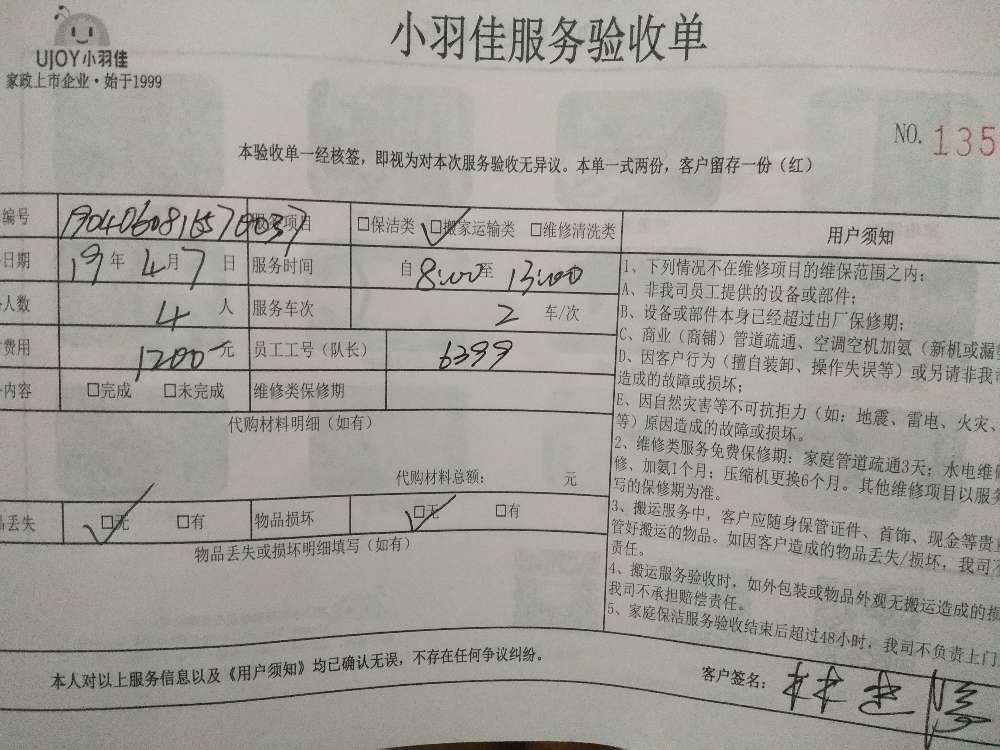 UJOY小羽佳
家政上市企业·始于1999
小羽佳服务验收单
NO. 135
本验收单一经核签，即视为对本次服务验收无异议。本单一式两份，客户留存一份（红）
编号 服务项目 □保洁类 □搬家运输类 □维修清洗类
日期 19年4月7日 服务时间 自8:00至13:00
人数 4人 服务车次 2车/次
费用 1200元 员工工号（队长） 6399
内容 □完成 □未完成 维修类保修期
代购材料明细（如有）
代购材料总额： 元
品丢失 □无 □有 物品损坏 □无 □有
物品丢失或损坏明细填写（如有）
用户须知
1、下列情况不在维修项目的维保范围之内：
A、非我司员工提供的设备或部件；
B、设备或部件本身已经超过出厂保修期；
C、商业（商铺）管道疏通、空调空机加氨（新机或漏
D、因客户行为（擅自装卸、操作失误等）或另请非我司
造成的故障或损坏；
E、因自然灾害等不可抗拒力（如：地震、雷电、火灾、
等）原因造成的故障或损坏。
2、维修类服务免费保修期：家庭管道疏通3天；水电维修
修、加氨1个月；压缩机更换6个月。其他维修项目以服务
写的保修期为准。
3、搬运服务中，客户应随身保管证件、首饰、现金等贵
管好搬运的物品。如因客户造成的物品丢失/损坏，我司不
责任。
4、搬运服务验收时，如外包装或物品外观无搬运造成的损
我司不承担赔偿责任。
5、家庭保洁服务验收结束后超过48小时，我司不负责上门
本人对以上服务信息以及《用户须知》均已确认无误，不存在任何争议纠纷。
客户签名：